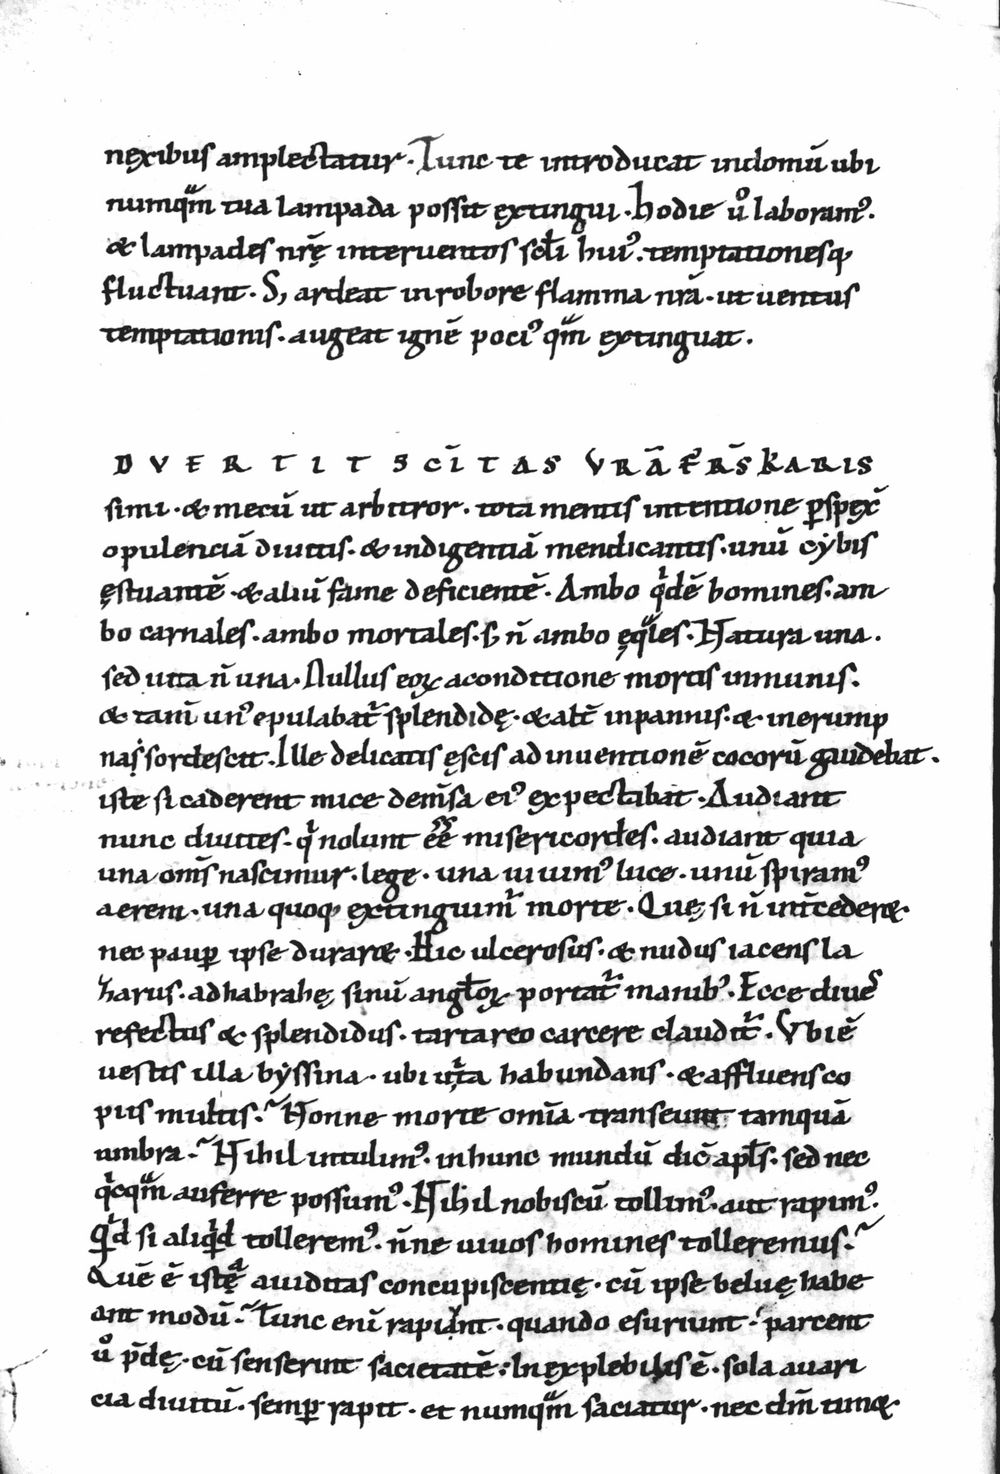 nęxibus amplectatur · Tunc te introducat indomū ubi
numqᷓm tua lampada possit ęxtingui · hodie ů laboramꝰ ·
& lampades nrę̄ interuentos sc̄li huiꝰ · temptationesq;
fluctuant · S; ardeat inrobore flamma nrā · ut uentus
temptationis · augeat ignē pociꝰ qᷓm extinguat ·
DVERTIT SCĪTAS VRĀ FR̄S KARIS
simi · & mecū ut arbitror · tota mentis intentione ꝑspęx̄
opulenciā diuitis · & indigentiā mendicantis · unū cẏbis
ęstuantē · & aliū fame deficientē · Ambo qͥdē homines · am
bo carnales · ambo mortales · s; n̄ ambo ęqᷓles · Natura una ·
sed uita n̄ una · Nullus eoꝝ aconditione mortis inmunis ·
& tam̄ unꝰ epulabat᷑ splendidę · & alt̄ inpannis · & inerump
nas̩ sordescit · Ille delicatis ęscis adinuentionē cocorū gaudebat ·
iste si caderent mice dem̄sa eiꝰ expectabat · Audiant
nunc diuites · qͥ nolunt ēē misericordes · audiant quia
una om̄s nascimur · lege · una uiuimꝰ luce · unū spiramꝰ
aerem · una quoq; extinguim᷑ morte · Quę si n̄ int̄ceder& ·
nec pauꝑ ipse durar& · Hic ulcerosus · & nudus iacens la
zarus · adhabrahę sinū angl̄oꝝ portat᷑ manibꝰ · Ecce diues
refectus & splendidus · tartareo carcere claudit᷑ · Vbi ē
uestis illa bẏssina · ubi uīta habundans · & affluens co
piis multis · Nonne morte om̄ia transeunt tamquā
umbra · Nihil intulimꝰ · inhunc mundū dic̄ apl̄s · sed nec
qͥcqᷓm auferre possumꝰ · Nihil nobiscū tollimꝰ · aut rapimꝰ ·
Qͥd si aliqͥd tolleremꝰ · n̄ne uiuos homines tolleremus ·
Quē ē istęᷓ auiditas concupiscentię · cū ipse beluę habe
ant modū · Tunc enī rapiant · quando esuriunt · parcent
ů p̄dę · cū senserint sacietatē · Inęxplebilis ē · sola auari
cia diuitū · semꝑ rapit · et numqᷓm saciatur · nec dm̄ tim&